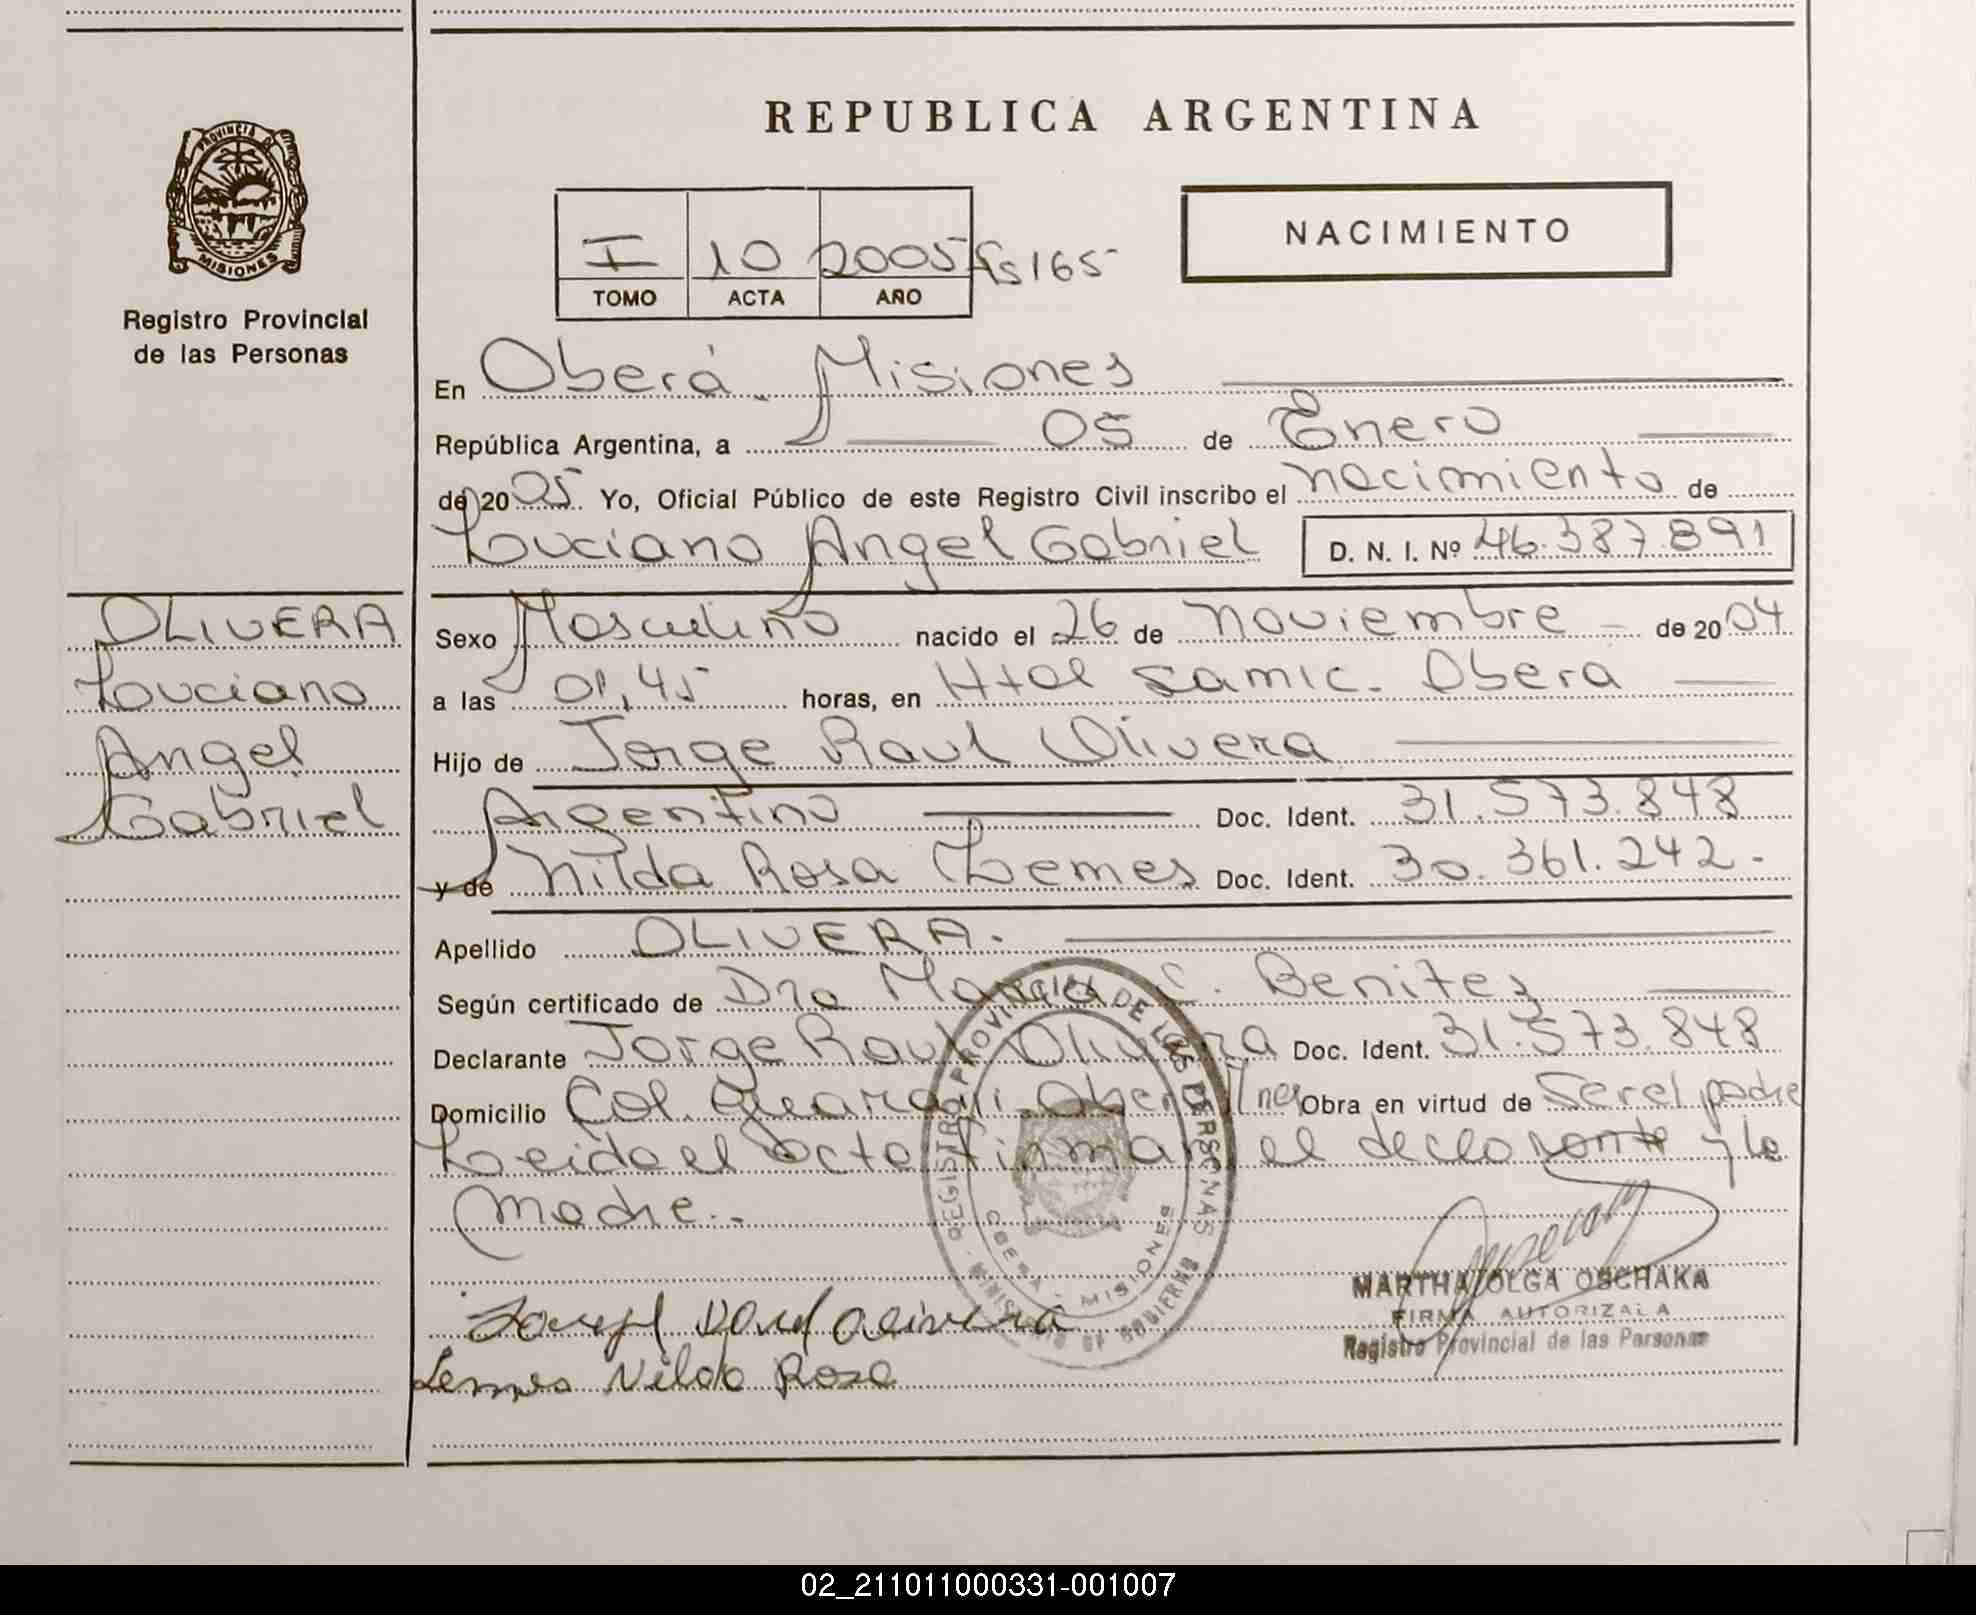 REPUBLICA ARGENTINA
PROVINCIA DE
MISIONES
Registro Provincial
de las Personas
NACIMIENTO
I 10 2005 Fs 165
TOMO ACTA AÑO
En Oberá. Misiones
República Argentina, a 05 de Enero
de 20 05 Yo, Oficial Público de este Registro Civil inscribo el nacimiento de
Luciano Angel Gabriel D. N. I. Nº 46.387.891
OLIVERA
Luciano
Angel
Gabriel
Sexo Masculino nacido el 26 de Noviembre de 20 04
a las 01,45 horas, en Htal Samic. Obera
Hijo de Jorge Raul Olivera
Argentino Doc. Ident. 31.573.848
y de Nilda Rosa Lemes Doc. Ident. 30.361.242.-
Apellido OLIVERA.
Según certificado de Dra C. Benitez
Declarante Jorge Raul Olivera Doc. Ident. 31.573.848
Domicilio Col. Guarani. Obera Mnes Obra en virtud de Ser el padre
Leida el acta firman el declarante y la
madre..
REGISTRO PROVINCIAL DE LAS PERSONAS
MINISTERIO DE GOBIERNO
OBERA - MISIONES
Olivera
Lemes Nilda Rosa
MARTHA OLGA OSCHAKA
FIRMA AUTORIZADA
Registro Provincial de las Personas
02_211011000331-001007